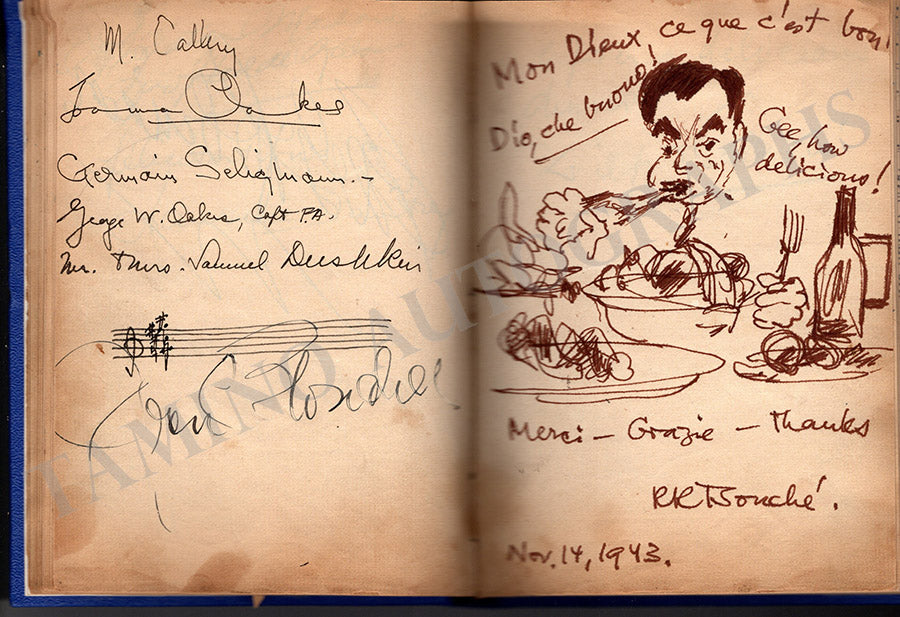 M. Callery
Oakes
Germain Seligmann. –
George W. Oakes, Capt FA.
Mr. & Mrs. Samuel Dushkin
Mon Dieux, ce que c'est bon!
Dio, che buono!
Gee, how
delicious!
Merci – Grazie – Thanks
RRBouché.
Nov. 14, 1943.
TAMINO AUTOGRAPHS